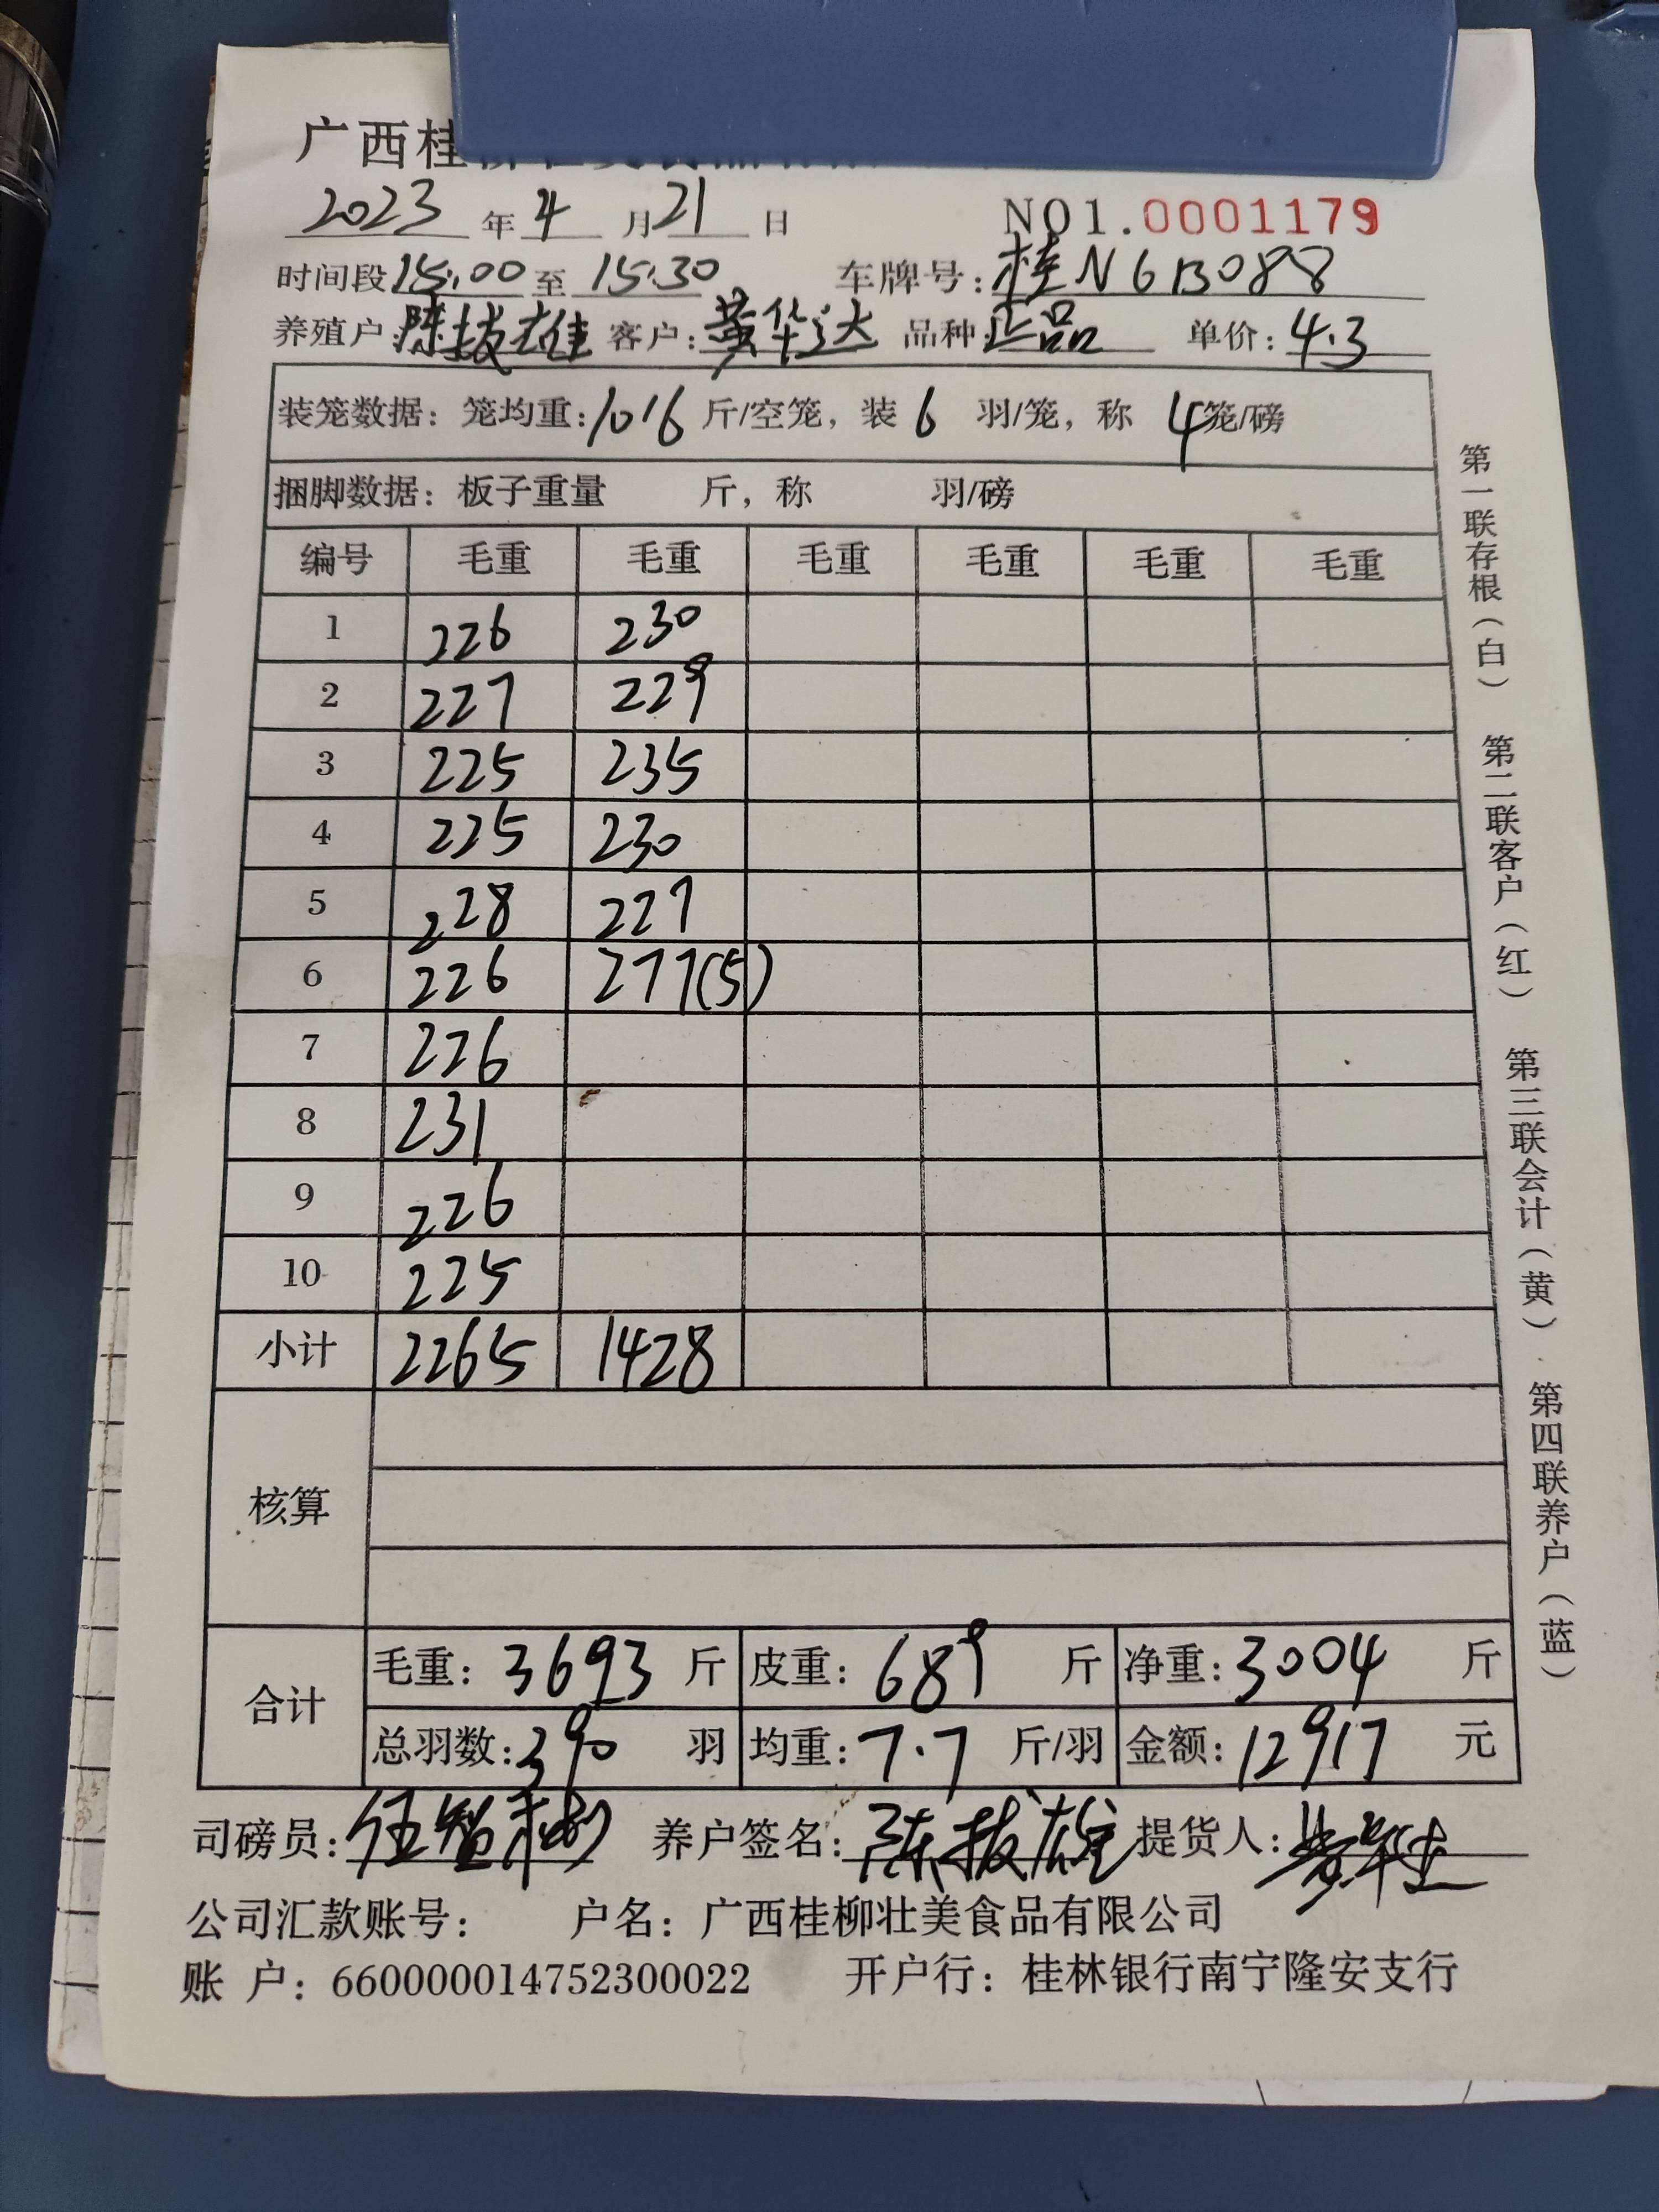 广西桂
2023 年 4 月 21 日 NO1.0001179
时间段 15:00 至 15:30 车牌号: 桂N6B088
养殖户: 陈拔雄 客户: 黄华达 品种: 正品 单价: 4.3
装笼数据: 笼均重: 1016 斤/空笼, 装 6 羽/笼, 称 4 笼/磅
捆脚数据: 板子重量 斤, 称 羽/磅
编号 毛重 毛重 毛重 毛重 毛重 毛重
1 226 230
2 227 229
3 225 235
4 225 230
5 228 227
6 226 277(5)
7 226
8 231
9 226
10 225
小计 2265 1428
核算
合计 毛重: 3693 斤 皮重: 689 斤 净重: 3004 斤
总羽数: 390 羽 均重: 7.7 斤/羽 金额: 12917 元
司磅员: 养户签名: 陈拔雄 提货人:
公司汇款账号: 户名: 广西桂柳壮美食品有限公司
账 户: 660000014752300022 开户行: 桂林银行南宁隆安支行
第一联存根(白) 第二联客户(红) 第三联会计(黄) 第四联养户(蓝)